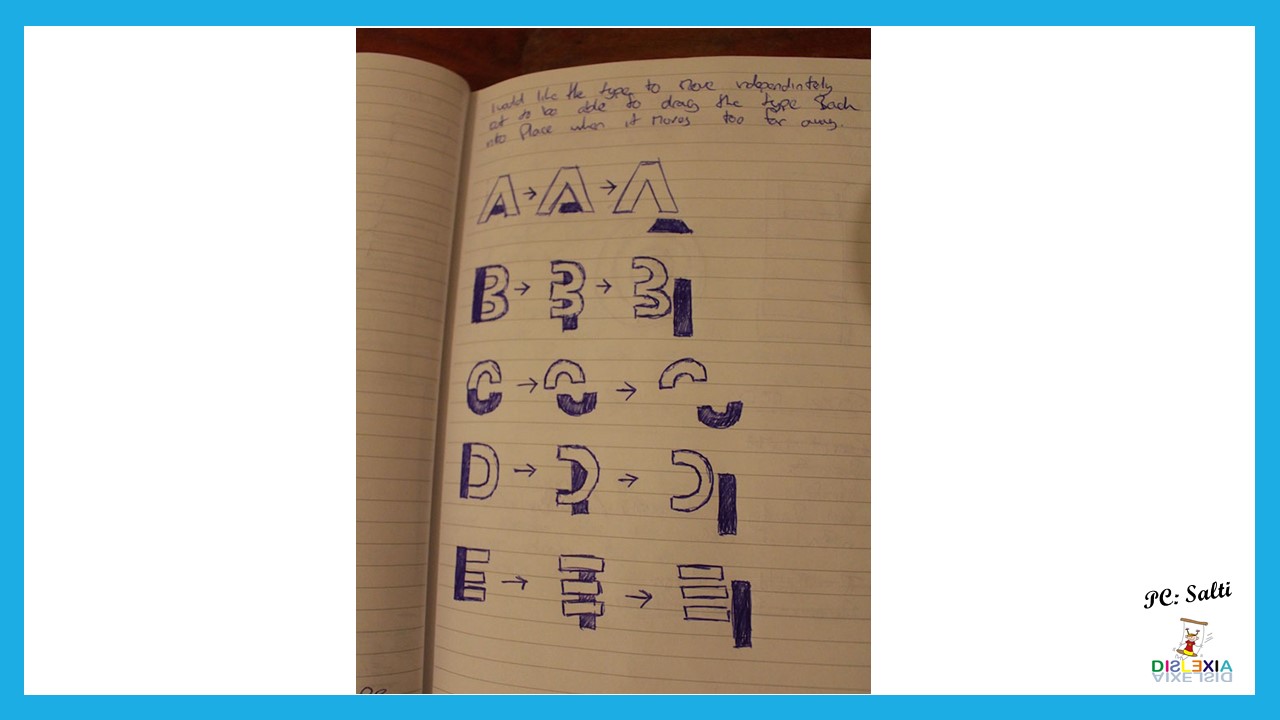 I would like the type to move independintely
but to be able to drag the type Back
into Place when it moves too far away.
A → A → A
B → B → B
C → C → C
D → D → D
E → E → E
PC: Salti
DISLEXIA